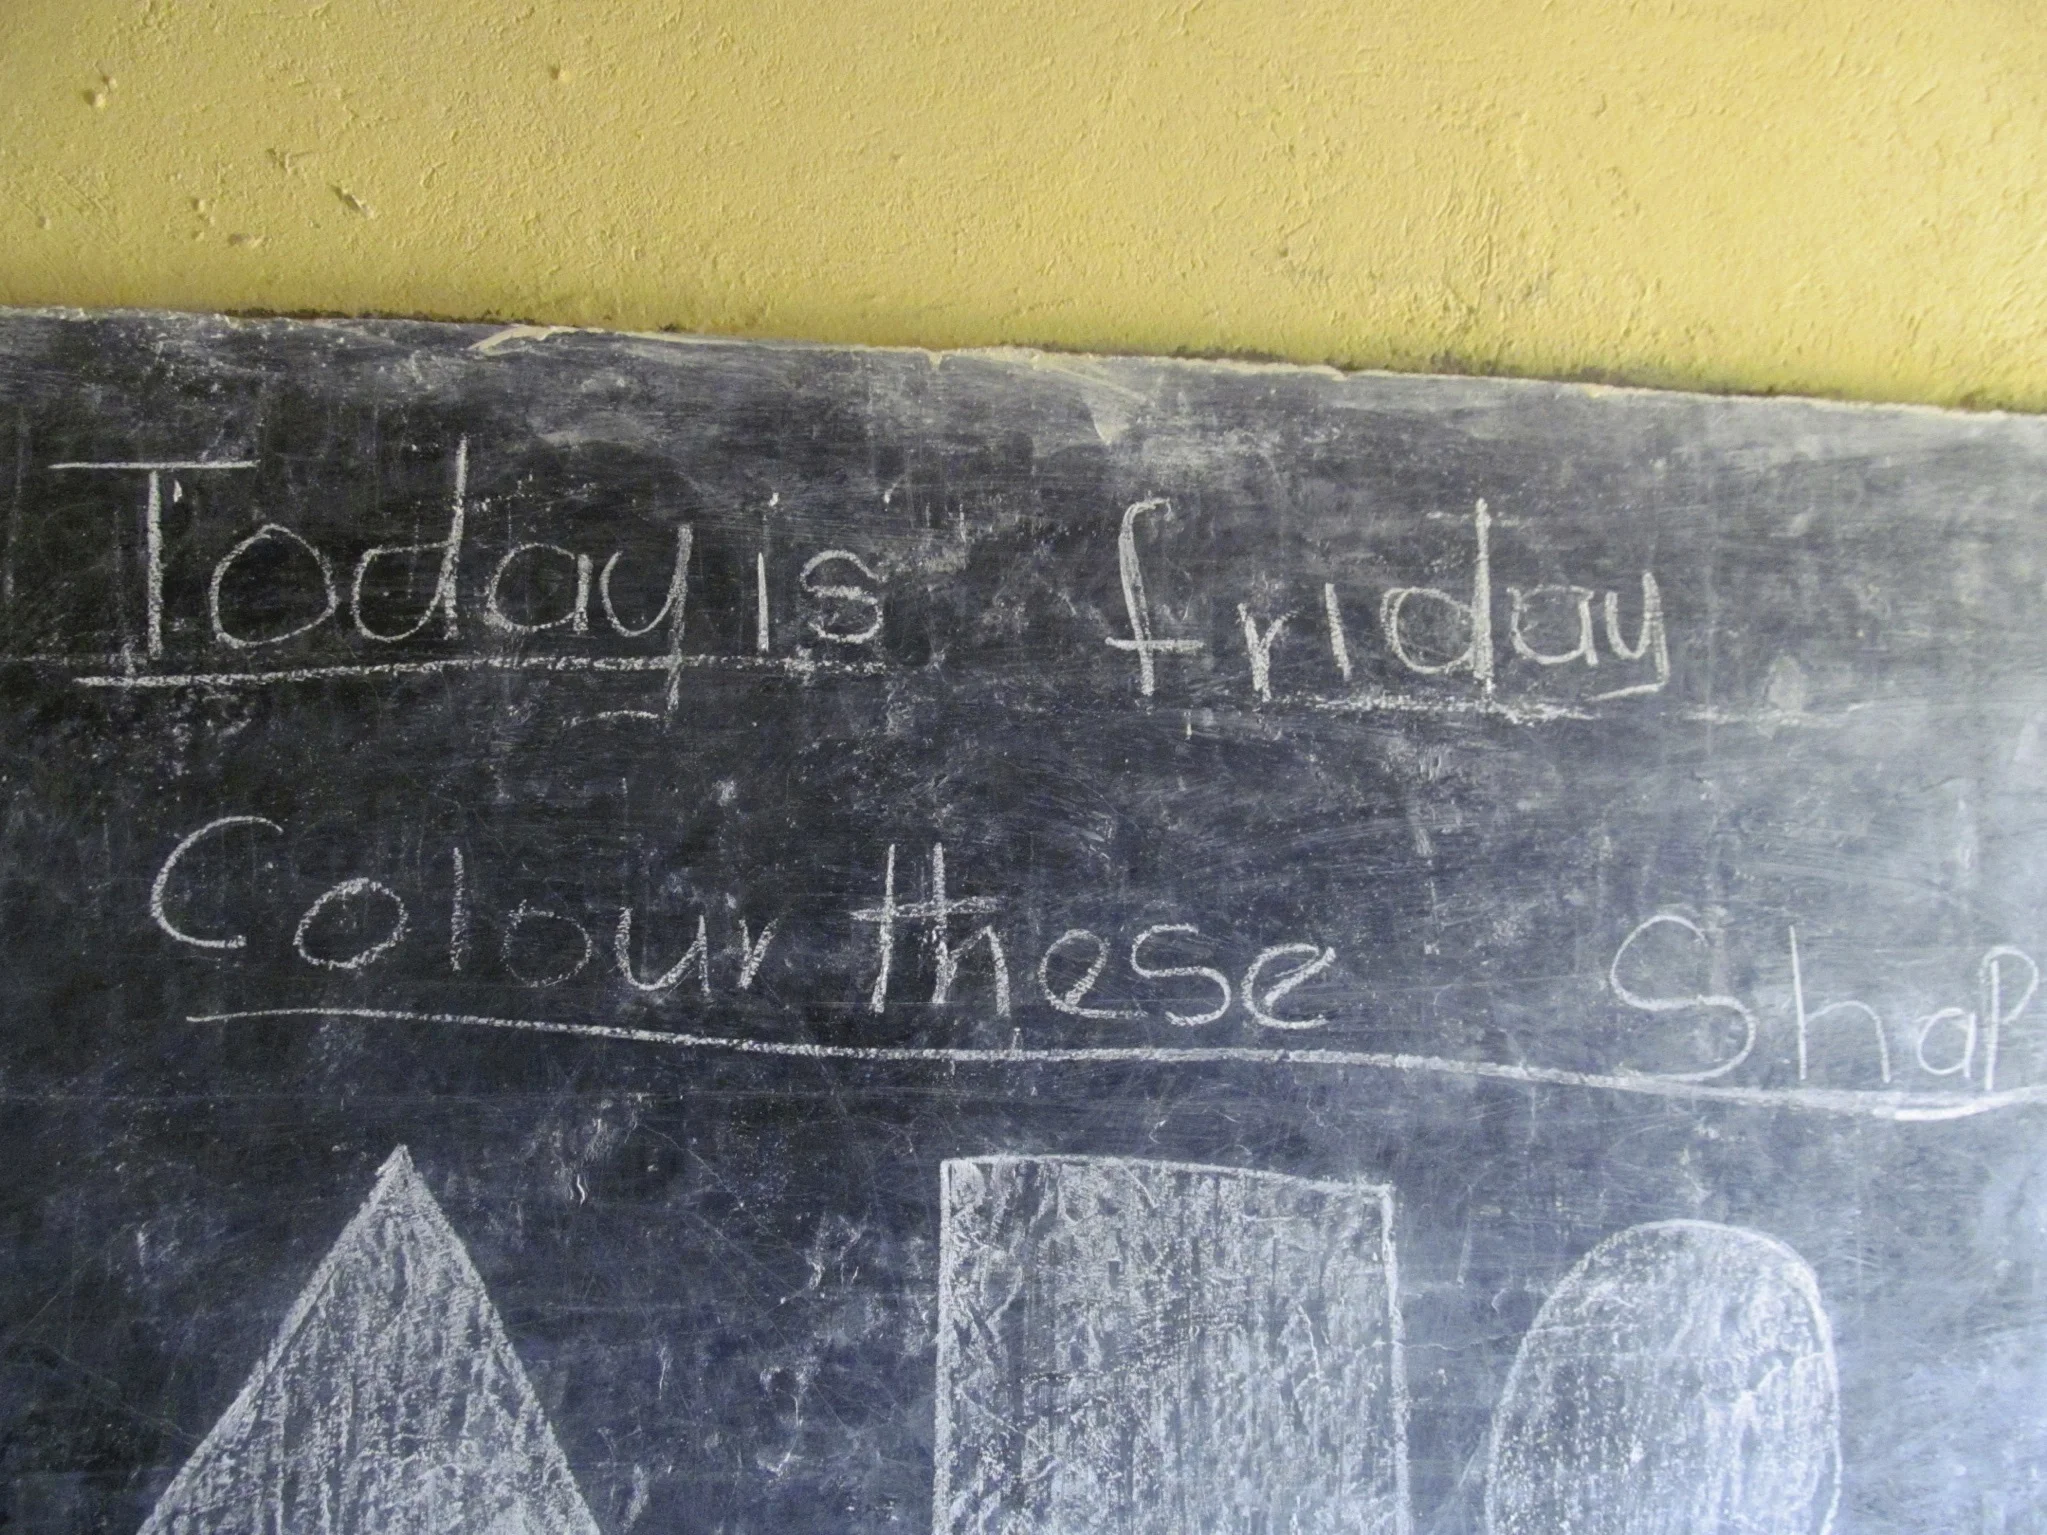 Today is friday
Colour these Shap